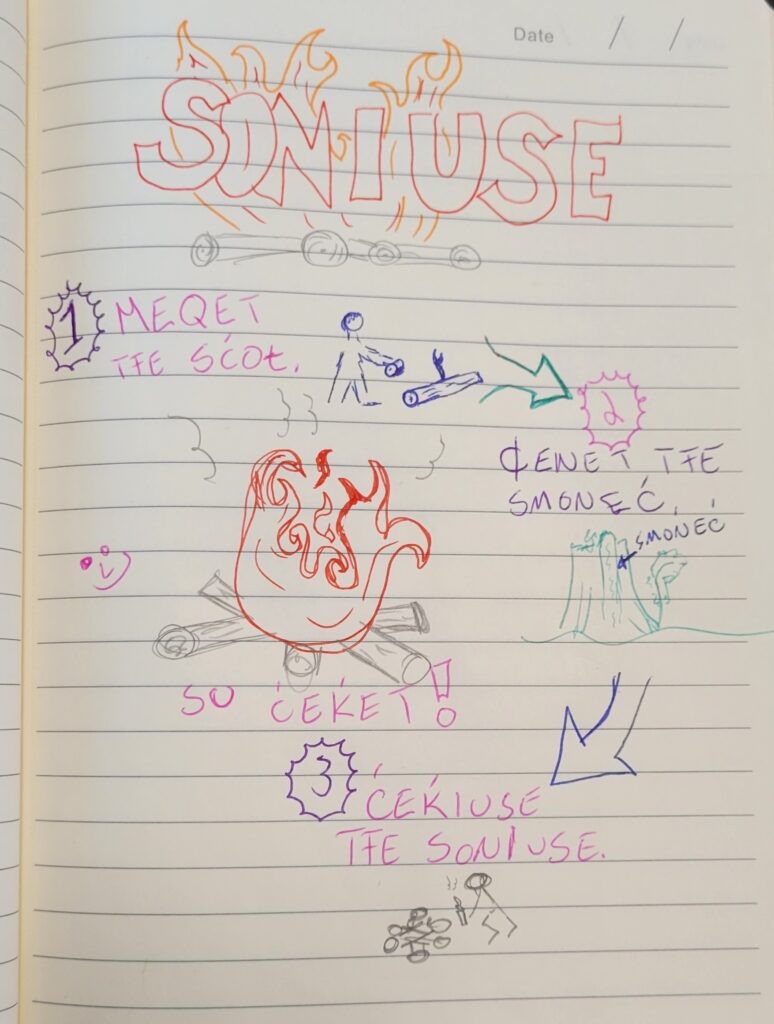 Date / /
SONIUSE
1 MEQET
TFE SĆOŁ.
2
₵ENET TFE
SMONEĆ.
SMONEĆ
SO ĆEḰET!
3 ĆEḰIUSE
TFE SONIUSE.